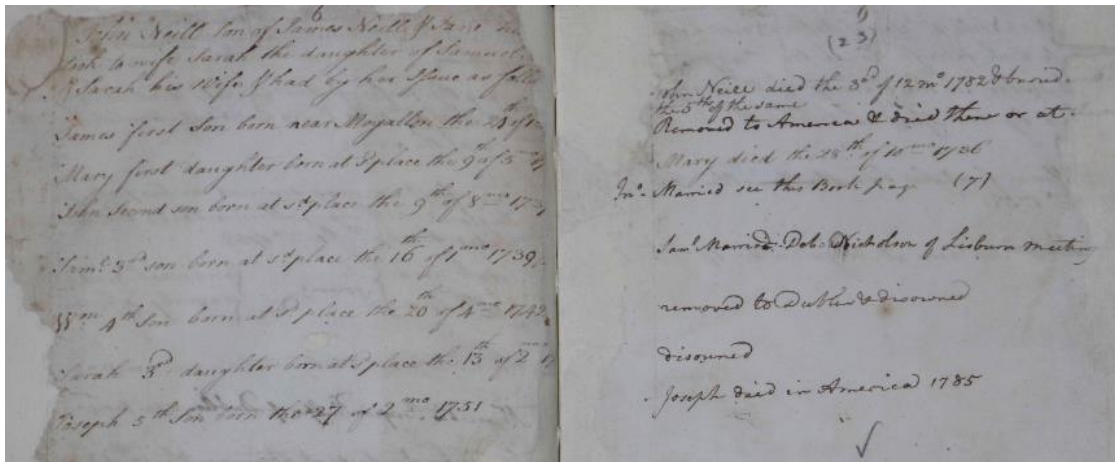 6
John Neill Son of James Neill & Jane
took to wife Sarah the daughter of Samuel
& Sarah his Wife & had by her Issue as foll
James first Son born near Moyallon the 28th of
Mary first daughter born at sd place the 9th of 5mo 17
John Second son born at sd place the 9th of 8mo 173
Saml 3rd son born at sd place the 16th of 1mo 1739
Wm 4th Son born at sd place the 20th of 4mo 1742
Sarah 3rd daughter born at sd place the 13th of 2mo 17
Joseph 5th Son born the 27 of 2mo 1751
6
(23)
John Neill died the 3rd of 12mo 1782 & buried
the 5th of the same
Removed to America & died there or at
Mary died the 28th of 10mo 1736
Jno Married see this Book page (7)
Saml Married Deb Nicholson of Lisburn meeting
removed to Dublin & disowned
disowned
Joseph died in America 1785